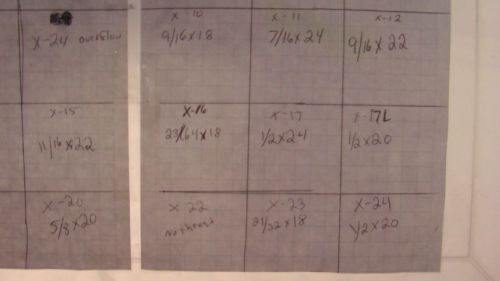 x-10
x-11
x-12
x-24 overflow
9/16 x 18
7/16 x 24
9/16 x 22
x-15
x-16
x-17
x-17L
11/16 x 22
23/64 x 18
1/2 x 24
1/2 x 20
x-20
x 22
x-23
x-24
5/8 x 20
No thread
21/32 x 18
1/2 x 20